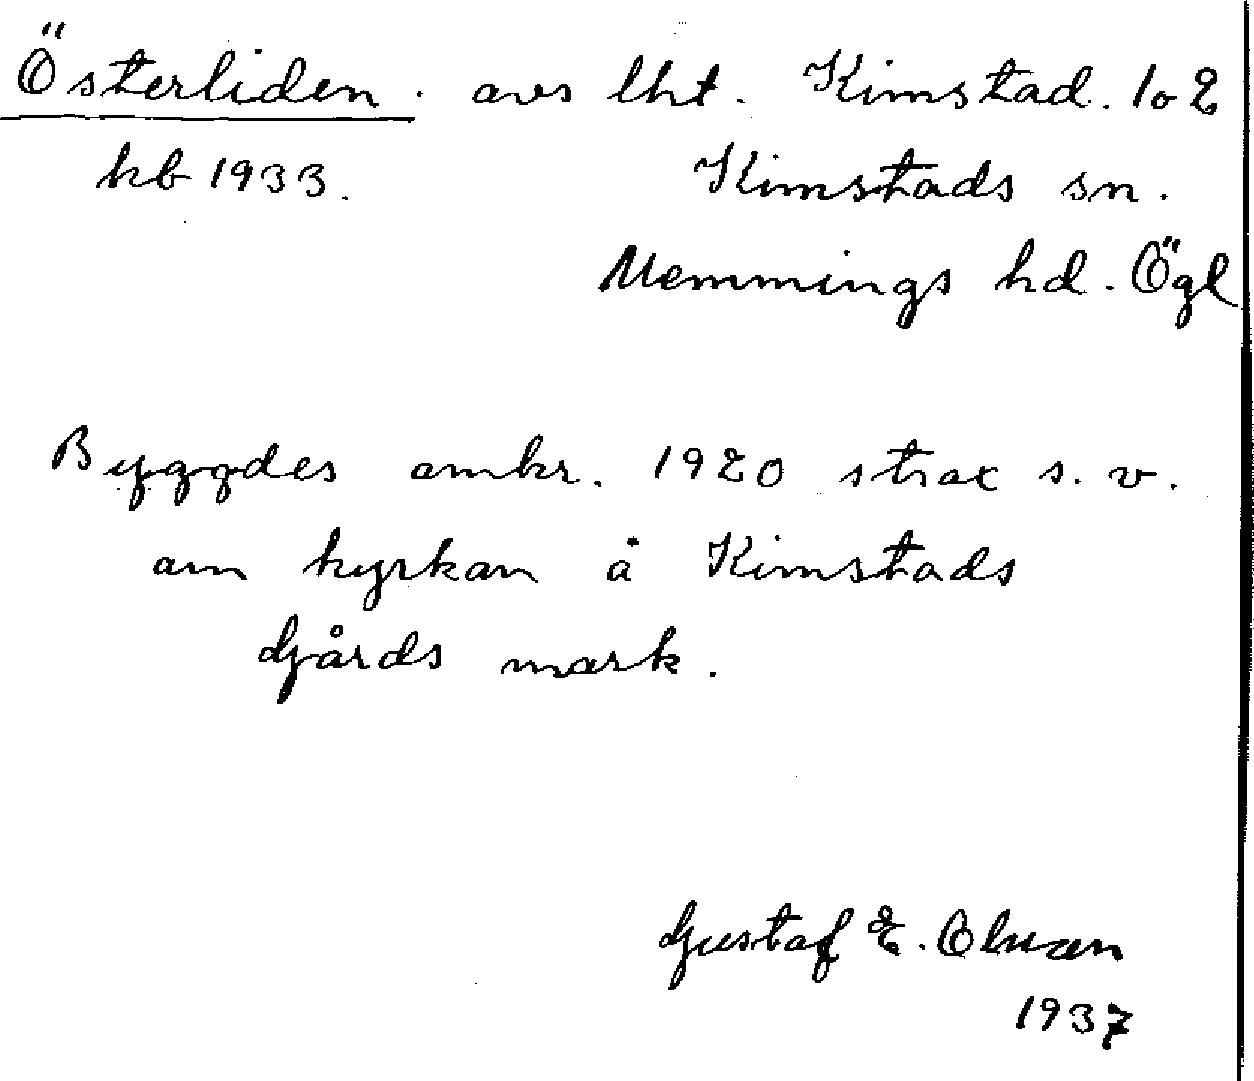 Österliden. avs lht. Kimstad. 1 o 2
kb 1933. Kimstads sn.
Memmings hd. Ögl
Byggdes omkr. 1920 strax s. v.
om kyrkan å Kimstads
Gårds mark.
Gustaf E.
1937